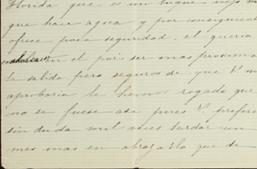 Florida que es un buque viejo
que hace agua y por consiguiente
ofrece poca seguridad. el queria
salir en el por ser mas proxima
la salida pero seguros de que Vm
aprobaria le hemos rogado que
no se fuese asi pues Vd prefer
sin duda mil veces tardar un
mes mas en abrazarlo que de